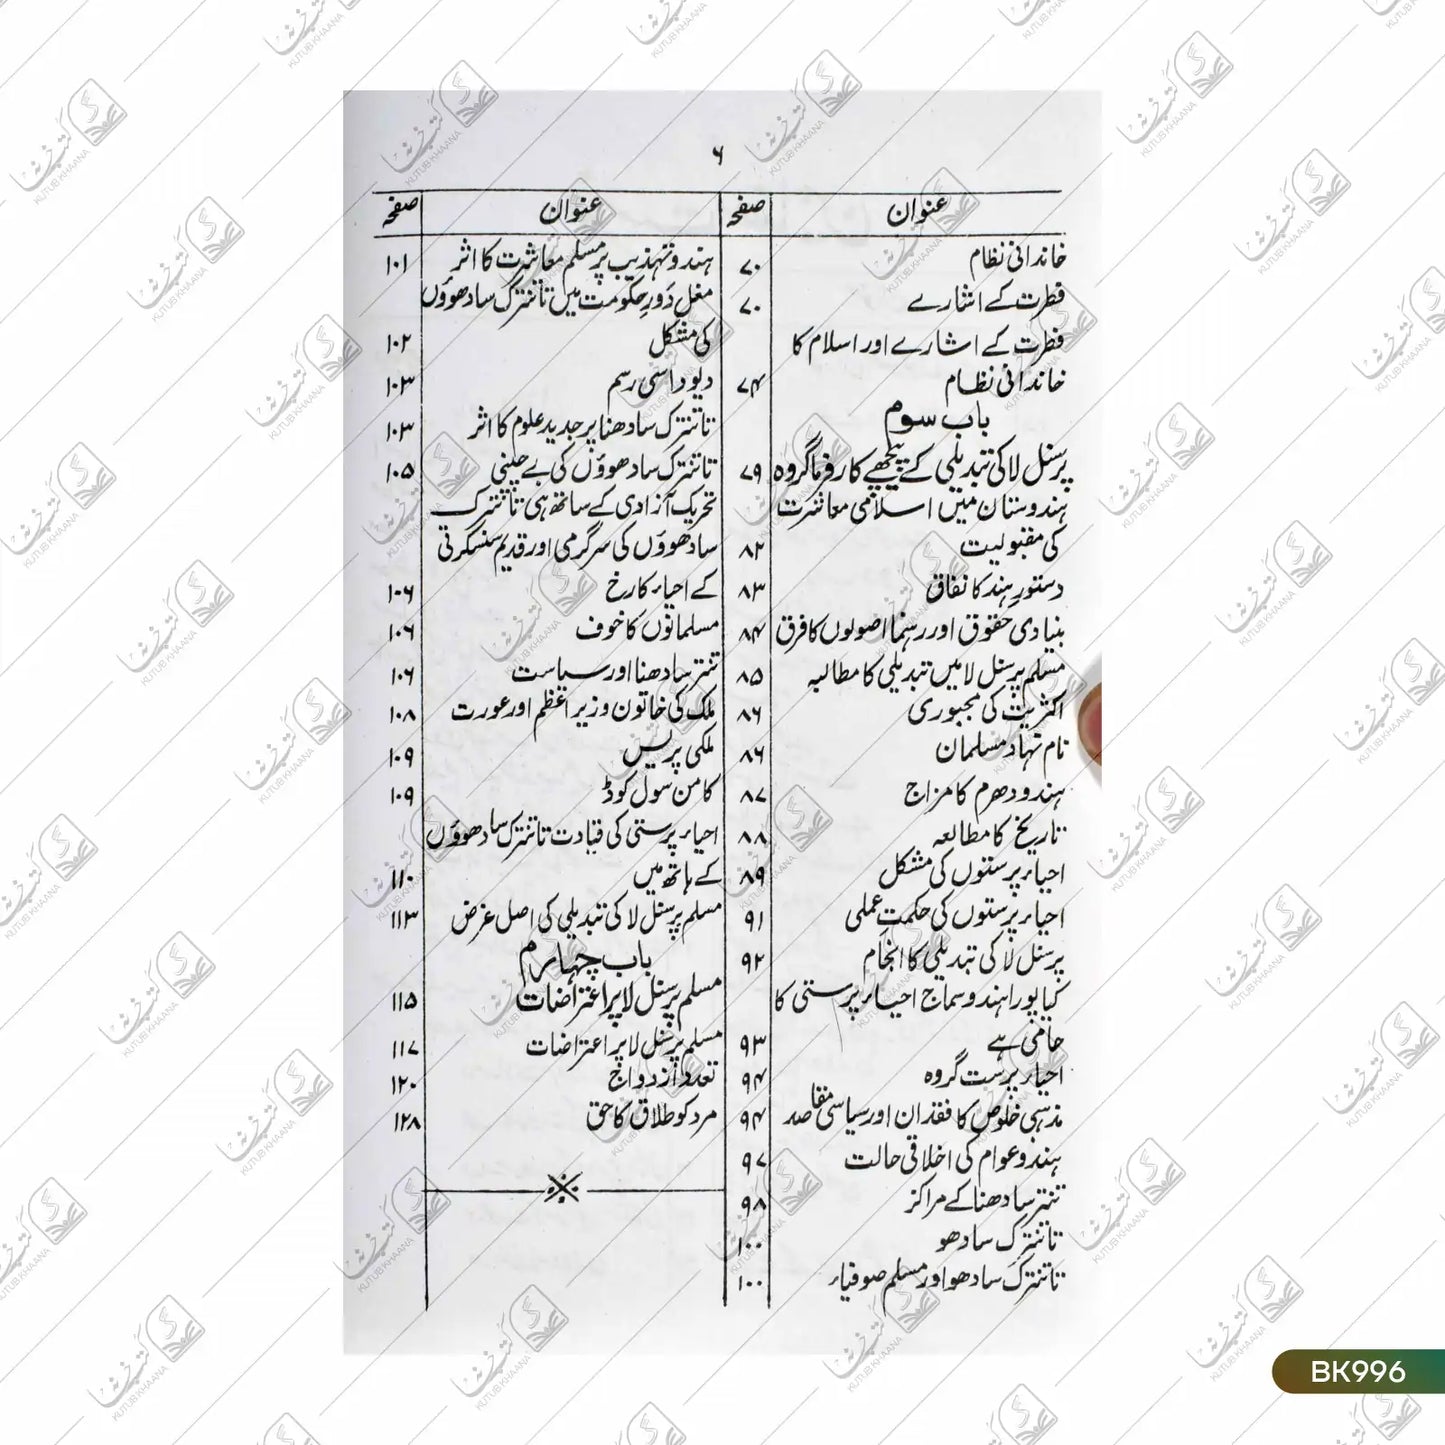 ۶
عنوان صفحہ
خاندانی نظام ۷۰
فطرت کے اشارے ۷۰
فطرت کے اشارے اور اسلام کا
خاندانی نظام ۷۴
باب سوم
پرسنل لا کی تبدیلی کے پیچھے کارفرما گروہ ۷۹
ہندوستان میں اسلامی معاشرت
کی مقبولیت ۸۲
دستورِ ہند کا نفاق ۸۳
بنیادی حقوق اور رہنما اصولوں کا فرق ۸۴
مسلم پرسنل لا میں تبدیلی کا مطالبہ ۸۵
اکثریت کی مجبوری ۸۶
نام نہاد مسلمان ۸۶
ہندو دھرم کا مزاج ۸۷
تاریخ کا مطالعہ ۸۸
احیاء پرستوں کی مشکل ۸۹
احیاء پرستوں کی حکمت عملی ۹۱
پرسنل لا کی تبدیلی کا انجام ۹۲
کیا پورا ہندو سماج احیاء پرستی کا
حامی ہے ۹۳
احیاء پرست گروہ ۹۴
مذہبی خلوص کا فقدان اور سیاسی مقاصد ۹۴
ہندو عوام کی اخلاقی حالت ۹۷
تنتر سادھنا کے مراکز ۹۸
تانترک سادھو ۱۰۰
تانترک سادھو اور مسلم صوفیاء ۱۰۰
عنوان صفحہ
ہندو تہذیب پر مسلم معاشرت کا اثر ۱۰۱
مغل دَورِ حکومت میں تانترک سادھوؤں
کی مشکل ۱۰۲
دیوداسی رسم ۱۰۳
تانترک سادھنا پر جدید علوم کا اثر ۱۰۳
تانترک سادھوؤں کی بے چینی ۱۰۵
تحریک آزادی کے ساتھ ہی تانترک
سادھوؤں کی سرگرمی اور قدیم سنسکرتی
کے احیاء کا رخ ۱۰۶
مسلمانوں کا خوف ۱۰۶
تنتر سادھنا اور سیاست ۱۰۶
ملک کی خاتون وزیر اعظم اور عورت ۱۰۸
ملکی پریس ۱۰۹
کامن سول کوڈ ۱۰۹
احیاء پرستی کی قیادت تانترک سادھوؤں
کے ہاتھ میں ۱۱۰
مسلم پرسنل لا کی تبدیلی کی اصل غرض ۱۱۳
باب چہارم
مسلم پرسنل لا پر اعتراضات ۱۱۵
مسلم پرسنل لا پر اعتراضات ۱۱۷
تعدد ازدواج ۱۲۰
مرد کو طلاق کا حق ۱۲۸
BK996
کتب خانہ
KUTUB KHAANA